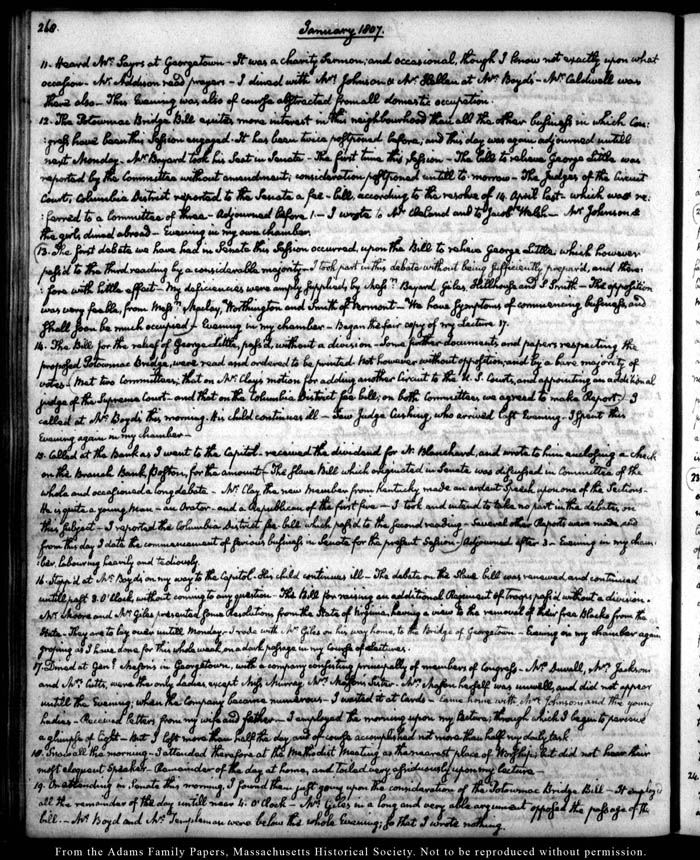 268.
January 1807.
11. Heard Mr. Sayrs at Georgetown - It was a charity Sermon, and occasional, though I know not exactly upon what
occasion - Mr. Addison read prayers - I dined with Mrs. Johnson & Mrs. Hellen at Mr. Boyd's - Mr. Caldwell was
there also - This Evening was also of course abstracted from all domestic occupation.
12. The Potowmac Bridge Bill excites more interest in this neighbourhood than all the other business in which Con:
:gress have been this Session engaged - It has been twice postponed before, and this day was again adjourned untill
next Monday - Mr. Bayard took his Seat in Senate - The first time this Session - The bill to relieve George Little was
reported by the Committee without amendment; consideration postponed untill to-morrow - The Judges of the Circuit
Court, Columbia District reported to the Senate a fee-bill, according to the resolve of 14. April last - which was re:
:ferred to a Committee of three - Adjourned before 1 - I wrote to Mr. and to Jacob Walsh - Mrs. Johnson &
the girls dined abroad - Evening in my own chamber.
13. The first debate we have had in Senate this Session occurred, upon the Bill to relieve George Little which however
pass'd to the third reading by a considerable majority - I took part in this debate without being sufficiently prepared, and there:
:fore with little effect - My deficiencies were amply supplied, by Messrs. Bayard, Giles, Hillhouse and J. Smith - The opposition
was very feeble, from Messrs. Maclay, Worthington and Smith of Vermont - We have symptoms of commencing business, and
shall soon be much occupied - Evening in my chamber - Began the fair copy of my lecture 17.
14. The Bill for the relief of George Little, pass'd without a division - Some further documents, and papers respecting the
proposed Potowmac Bridge, were read and ordered to be printed. Not however without opposition, and by a bare majority of
votes - Met two Committees; that on Mr. Clay's motion for adding another Circuit to the U.S. Courts, and appointing an additional
judge of the Supreme Court - and that on the Columbia District fee bill; on both Committees we agreed to make Report - I
called at Mr. Boyd's this morning. His child continues ill - Saw Judge Cushing, who arrived last Evening. I spent this
Evening again in my chamber -
15. Called at the Bank as I went to the Capitol - received the dividend for N. Blanchard, and wrote to him enclosing a check
on the Branch Bank Boston, for the amount - The Slave Bill which originated in Senate was discussed in Committee of the
whole and occasioned a long debate - Mr. Clay, the new Member from Kentucky made an ardent Speech upon one of the Sections -
He is quite a young Man - an Orator - and a Republican of the first fire - I took and intend to take no part in the debates, on
this subject - I reported the Columbia District fee bill which pass'd to the second reading - Several other Reports were made, and
from this day I date the commencement of serious business in Senate for the present Session - Adjourned after 3 - Evening in my cham:
:ber. labouring heavily and tediously.
16. Stopp'd at Mr. Boyd's on my way to the Capitol. His child continues ill - The debate on the Slave bill was renewed, and continued
untill past 3. O'Clock without coming to any question - The Bill for raising an additional Regiment of troops pass'd without a division.
Mr. Moore and Mr. Giles presented some Resolutions from the State of Virginia, having a view to the removal of their free Blacks from the
State - They are to lay over untill Monday - I rode with Mr. Giles on his way home, to the Bridge of Georgetown - Evening in my chamber again
groping as I have done for this whole week, on a dark passage in my Course of lectures.
17. Dined at Genl. Mason's in Georgetown, with a company consisting principally of members of Congress - Mrs. Duvall, Mrs. Jackson
and Mrs. Cutts, were the only ladies except Miss Murray, Mrs. Mason's Sister - Mrs. Mason herself was unwell, and did not appear
untill the Evening; when the Company became numerous - I wasted it at Cards - Came home with Mrs. Johnson and the young
ladies - Received letters from my wife and father - I employed the morning upon my lecture; through which I begin to perceive
a glimpse of light - But I lost more than half the day and of course accomplished not more than half my daily task.
18. Snow all the morning - I attended therefore at the Methodist Meeting as the nearest place of Worship; but did not hear their
most eloquent Speaker - Remainder of the day at home, and toiled very assiduously upon my lecture -
19. On attending in Senate this morning, I found them just going upon the consideration of the Potowmac Bridge Bill - It employ'd
all the remainder of the day untill near 4. O'Clock - Mr. Giles in a long and very able argument opposed the passage of the
bill. - Mr. Boyd and Mr. Templeman were below the whole Evening, so that I wrote nothing.
From the Adams Family Papers, Massachusetts Historical Society. Not to be reproduced without permission.